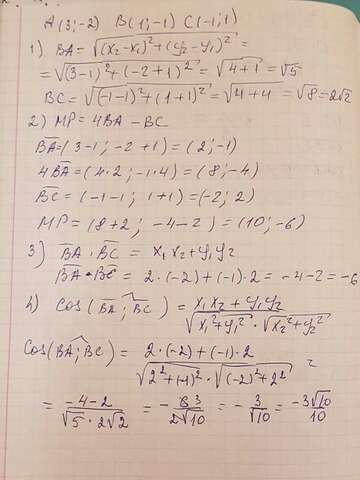 A(3;-2) B(1;-1) C(-1;1)
1) BA = √(x₂-x₁)²+(y₂-y₁)² =
= √(3-1)²+(-2+1)² = √4+1 = √5
BC = √(-1-1)²+(1+1)² = √4+4 = √8 = 2√2
2) MP = 4BA - BC
BA = (3-1; -2+1) = (2;-1)
4BA = (4·2; -1·4) = (8;-4)
BC = (-1-1; 1+1) = (-2; 2)
MP = (8+2; -4-2) = (10;-6)
3) BA · BC = x₁x₂+y₁y₂
BA · BC = 2·(-2)+(-1)·2 = -4-2 = -6
4) cos(BA;BC) = x₁x₂+y₁y₂ / √x₁²+y₁² · √x₂²+y₂²
cos(BA;BC) = 2·(-2)+(-1)·2 / √2²+(-1)² · √(-2)²+2² =
= -4-2 / √5·2√2 = - 6 3 / 2√10 = - 3 / √10 = -3√10 / 10